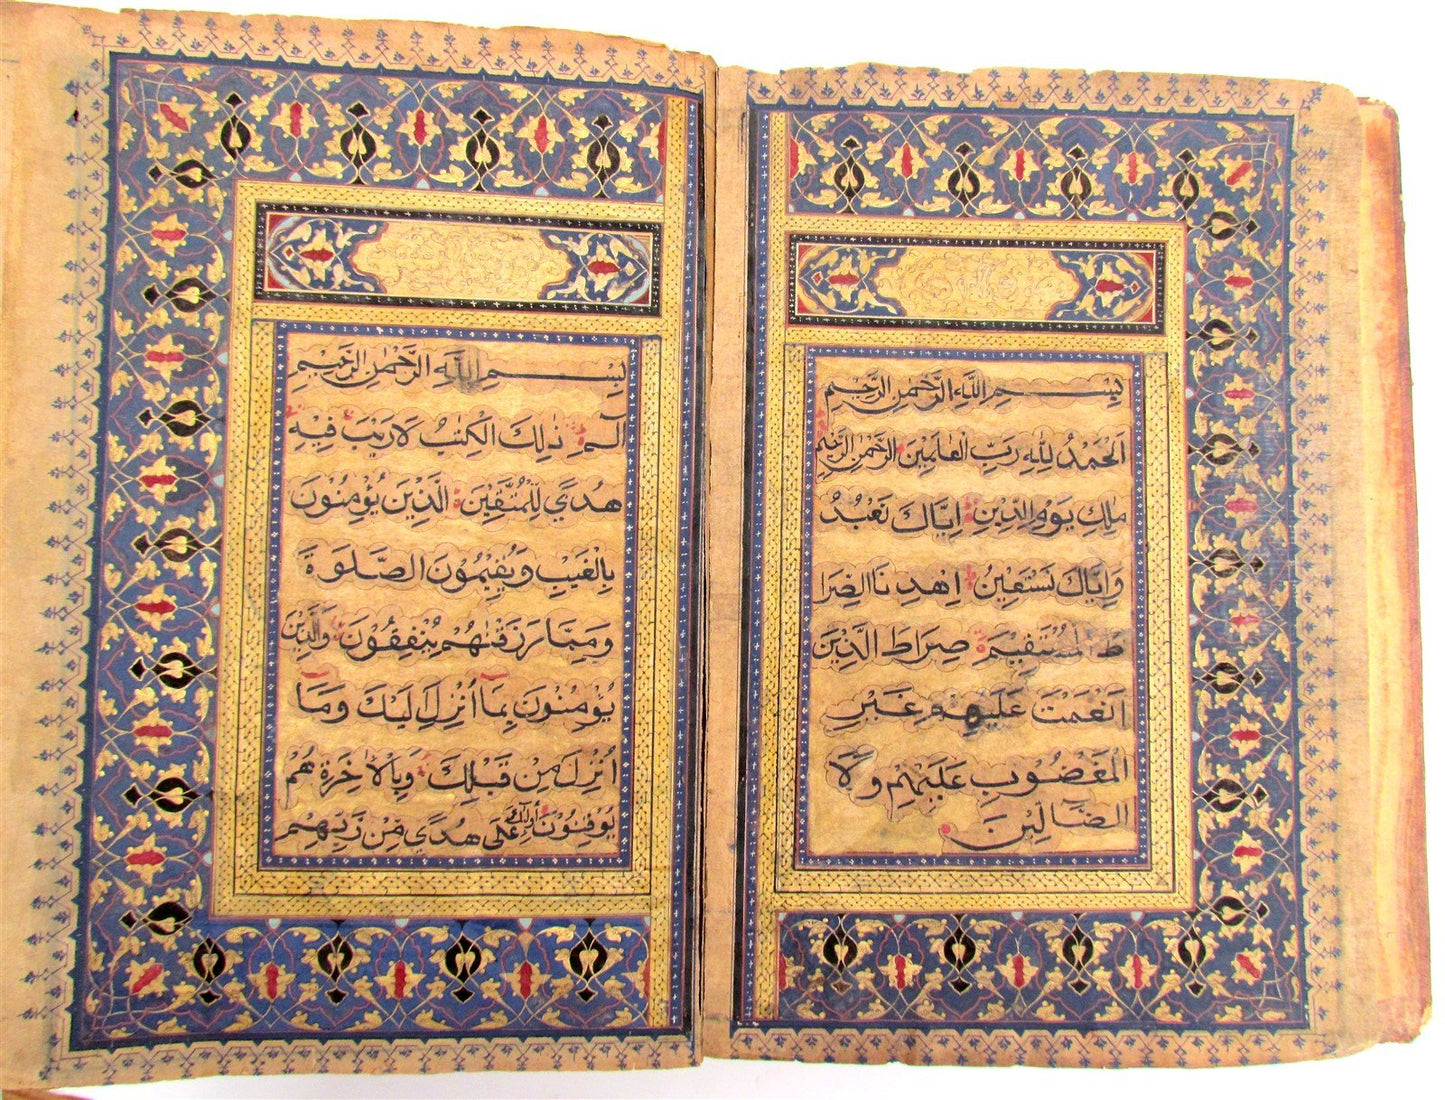 بِسْمِ اللَّهِ الرَّحْمٰنِ الرَّحِيمِ
اَلْحَمْدُ لِلّٰهِ رَبِّ الْعَالَمِينَ الرَّحْمٰنِ الرَّحِيمِ
مَالِكِ يَوْمِ الدِّينِ اِيَّاكَ نَعْبُدُ
وَاِيَّاكَ نَسْتَعِينُ اِهْدِنَا الصِّرَا
طَ الْمُسْتَقِيمَ صِرَاطَ الَّذِينَ
اَنْعَمْتَ عَلَيْهِمْ غَيْرِ
الْمَغْضُوبِ عَلَيْهِمْ وَلَا
الضَّالِّينَ
بِسْمِ اللَّهِ الرَّحْمٰنِ الرَّحِيمِ
الٓمٓ ذٰلِكَ الْكِتٰبُ لَا رَيْبَ فِيهِ
هُدًى لِلْمُتَّقِينَ الَّذِينَ يُؤْمِنُونَ
بِالْغَيْبِ وَيُقِيمُونَ الصَّلٰوةَ
وَمِمَّا رَزَقْنٰهُمْ يُنْفِقُونَ وَالَّذِينَ
يُؤْمِنُونَ بِمَا اُنْزِلَ لَيْكَ وَمَا
اُنْزِلَ مِنْ قَبْلِكَ وَبِالْاٰخِرَةِ هُمْ
يُوقِنُونَ اُولٰٓئِكَ عَلٰى هُدًى مِنْ رَبِّهِمْ